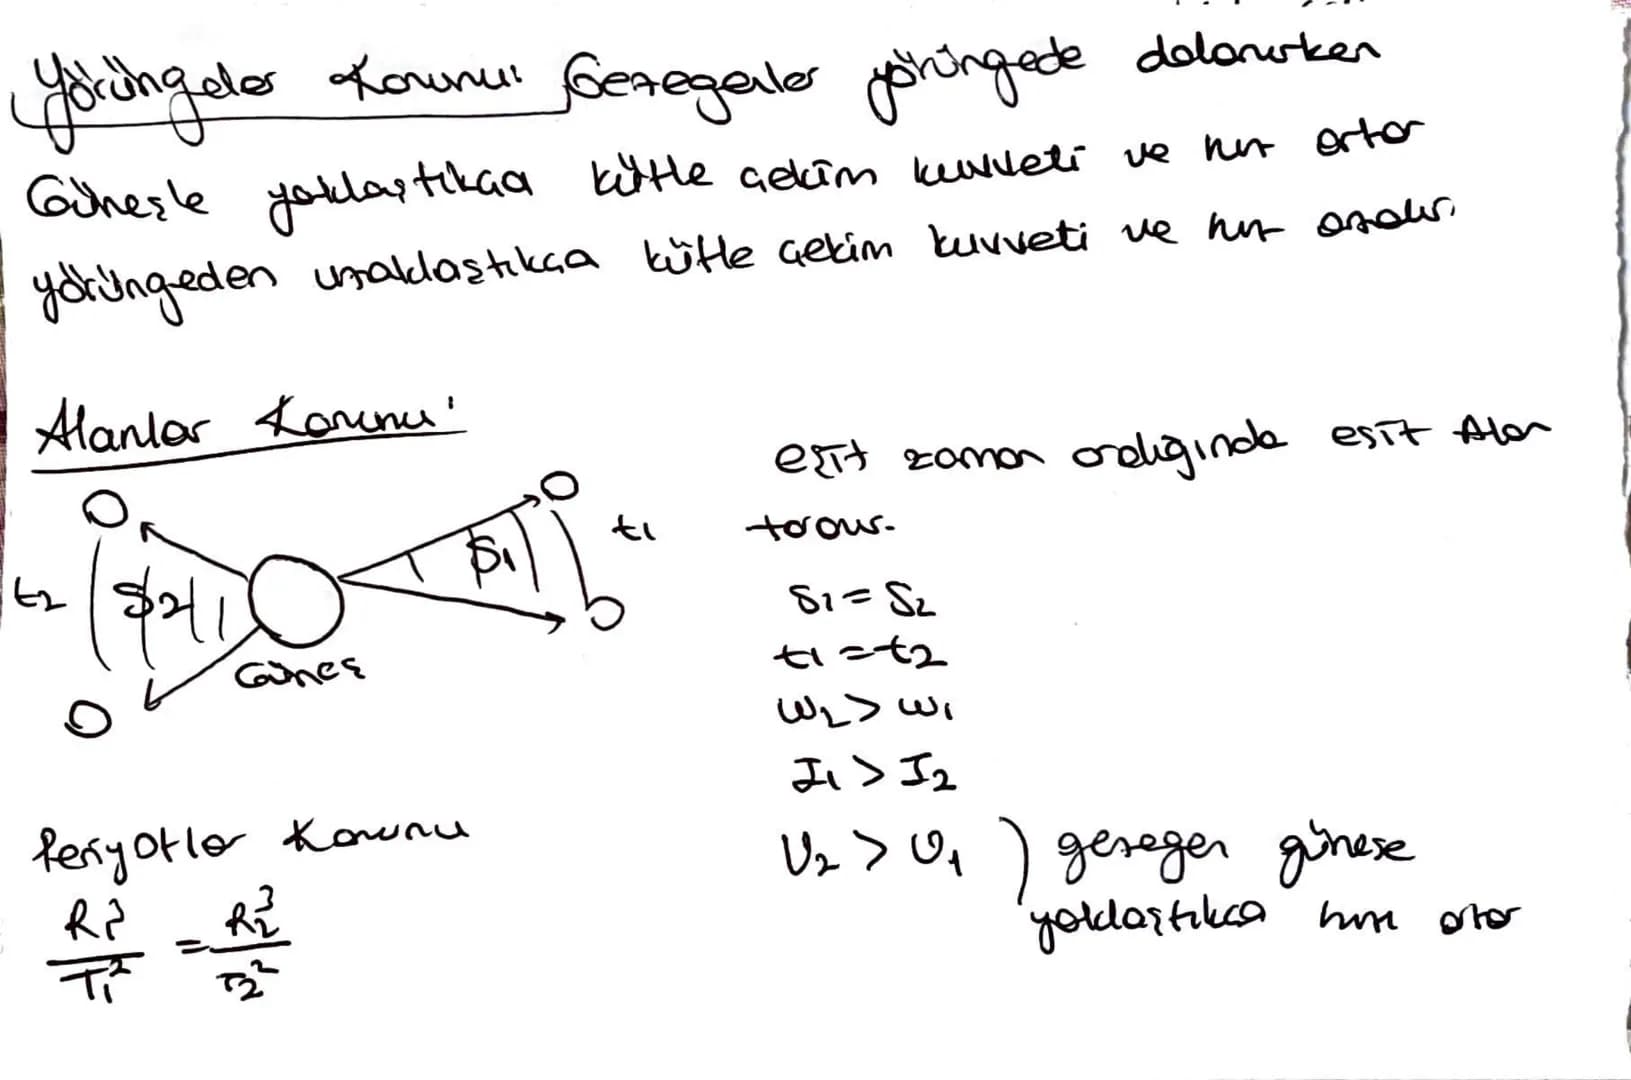 Yörüngeler Kanunu: Gezegenler yörüngede dolanırken
Güneşle yaklaştıkça kütle çekim kuvveti ve hız artar
yörüngeden uzaklaştıkça kütle çekim kuvveti ve hız azalır.
Alanlar Kanunu:
eşit zaman aralığında eşit Alan
tarar.
t2 S2 Güneş S1 t1
S1 = S2
t1 = t2
W2 > W1
I1 > I2
V2 > V1 ) gezegen güneşe
yaklaştıkça hızı artar
Periyotlar Kanunu
R1³/T1² = R2³/T2²